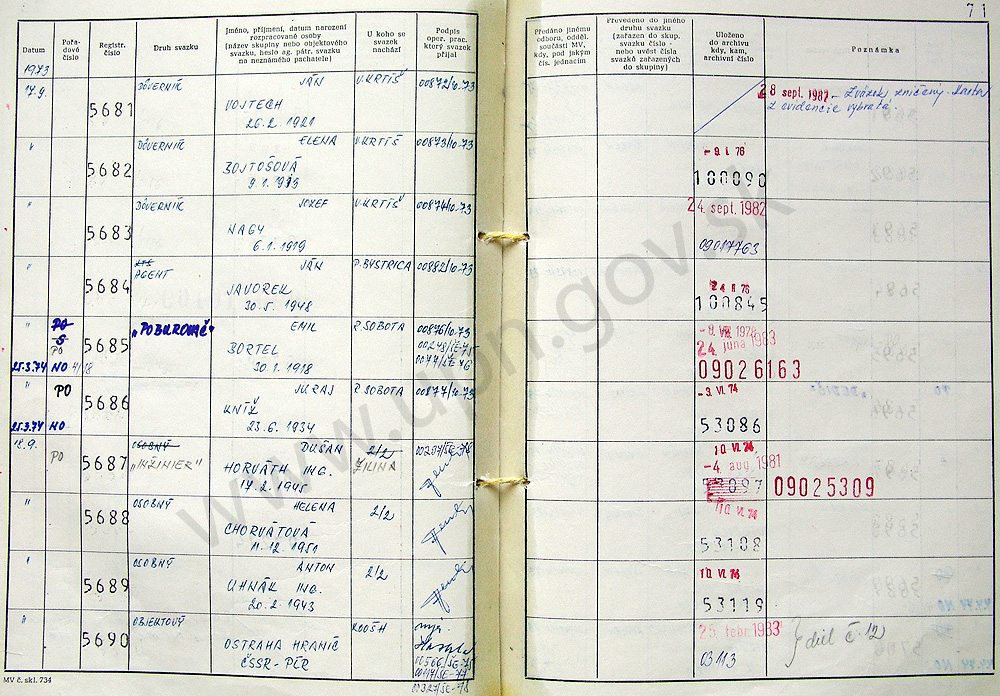 71
Datum
Pořadové číslo
Registr. číslo
Druh svazku
Jméno, příjmení, datum narození
rozpracované osoby
(název skupiny nebo objektového
svazku, heslo ag. pátr. svazku
na neznámého pachatele)
U koho se
svazek
nachází
Podpis
oper. prac.
který svazek
přijal
Předáno jinému
odboru, odděl.
součásti MV,
kdy, pod jakým
čís. jednacím
Převedeno do jiného
druhu svazku
(zařazen do skup.
svazku číslo -
nebo uvést čísla
svazků zařazených
do skupiny)
Uloženo
do archivu
kdy, kam,
archivní číslo
Poznámka
1973
17.9. 5681 DÔVERNÍK JÁN V. KRTÍŠ 00872/10-73 28 sept. 1982 - Zväzok zničený.
VOJTECH z evidencie vybratá.
26.2. 1921
" 5682 DÔVERNÍK ELENA V. KRTÍŠ 00873/10-73 -9. 76
BOJTOŠOVÁ 100090
9.1. 1933
" 5683 DÔVERNÍK JOZEF V. KRTÍŠ 00874/10-73 24. sept. 1982
NAGY 09017763
6.1. 1919
" 5684 AGENT JÁN P. BYSTRICA 00882/10-73 76
JAVOREK 100845
30.5. 1948
" PO 5685 "POBUROVAČ" EMIL R. SOBOTA 00876/10-73 1978
S 24. júna 1983
PO BORTEL 09026163
25.3.74 NO 30.1. 1918
" PO 5686 JURAJ R. SOBOTA 00877/10-73 -3. VI. 74
KNÍŽ 53086
25.3.74 NO 23.6. 1934
18.9. PO 5687 OSOBNÝ DUŠAN 2/2 10. VI. 74
"INŽINIER" HORVÁTH ING. ŽILINA -4. aug. 1981
17.2. 1945 53097 09025309
" 5688 OSOBNÝ HELENA 2/2 10. VI. 74
CHORVÁTOVÁ 53108
11.12. 1951
" 5689 OSOBNÝ ANTON 2/2 10. VI. 74
UHNÁK ING. 53119
20.2. 1943
" 5690 OBJEKTOVÝ KOOŠH 25. febr. 1983 diel č. 12
OSTRAHA HRANÍC 03113
ČSSR - PĽR
00566/ŠE-75
00327/ŠE-78
MV č. skl. 734
www.upn.gov.sk